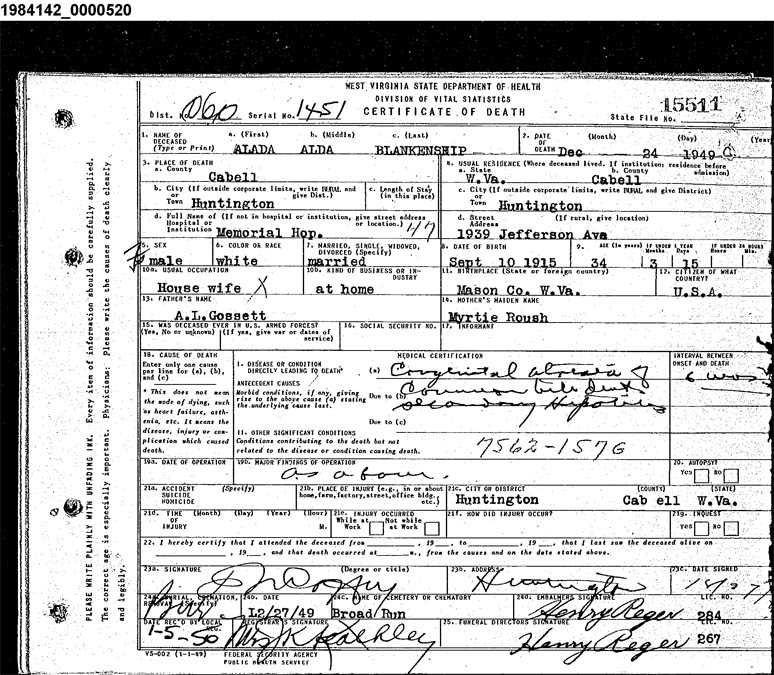 1984142_0000520
WEST VIRGINIA STATE DEPARTMENT OF HEALTH
DIVISION OF VITAL STATISTICS
CERTIFICATE OF DEATH
Dist. No. 060 Serial No. 1451
State File No. 15511
1. NAME OF DECEASED (Type or Print) a. (First) b. (Middle) c. (Last)
ALADA ALDA BLANKENSHIP
2. DATE OF DEATH (Month) (Day) (Year)
Dec 24 1949
3. PLACE OF DEATH
a. County
Cabell
4. USUAL RESIDENCE (Where deceased lived. If institution: residence before admission)
a. State b. County
W.Va. Cabell
b. City (If outside corporate limits, write RURAL and give Dist.)
or Town Huntington
c. Length of Stay (in this place)
c. City (If outside corporate limits, write RURAL and give District)
or Town Huntington
d. Full Name of (If not in hospital or institution, give street address or location.)
Hospital or Institution Memorial Hop. 47
d. Street Address (If rural, give location)
1939 Jefferson Ave
5. SEX
male
6. COLOR OR RACE
white
7. MARRIED, SINGLE, WIDOWED, DIVORCED (Specify)
married
8. DATE OF BIRTH
Sept 10 1915
9. AGE (In years) IF UNDER 1 YEAR Months Days IF UNDER 24 HOURS Hours Min.
34 3 15
10a. USUAL OCCUPATION
House wife X
10b. KIND OF BUSINESS OR INDUSTRY
at home
11. BIRTHPLACE (State or foreign country)
Mason Co. W.Va.
12. CITIZEN OF WHAT COUNTRY?
U.S.A.
13. FATHER'S NAME
A.L.Gossett
14. MOTHER'S MAIDEN NAME
Myrtie Roush
15. WAS DECEASED EVER IN U.S. ARMED FORCES?
(Yes, No or unknown) (If yes, give war or dates of service)
16. SOCIAL SECURITY NO.
17. INFORMANT
18. CAUSE OF DEATH
Enter only one cause per line for (a), (b), and (c)
* This does not mean the mode of dying, such as heart failure, asthenia, etc. It means the disease, injury or complication which caused death.
MEDICAL CERTIFICATION
INTERVAL BETWEEN ONSET AND DEATH
I. DISEASE OR CONDITION DIRECTLY LEADING TO DEATH* (a) Congenital atresia of
ANTECEDENT CAUSES
Morbid conditions, if any, giving rise to the above cause (a) stating the underlying cause last.
Due to (b) Common bile duct
secondary Hepatitis
Due to (c)
6 wks
II. OTHER SIGNIFICANT CONDITIONS
Conditions contributing to the death but not related to the disease or condition causing death.
7562-157G
19a. DATE OF OPERATION
19b. MAJOR FINDINGS OF OPERATION
as above.
20. AUTOPSY?
Yes No
21a. ACCIDENT SUICIDE HOMICIDE (Specify)
21b. PLACE OF INJURY (e.g., in or about home, farm, factory, street, office bldg., etc.)
21c. CITY OR DISTRICT (COUNTY) (STATE)
Huntington Cab ell W.Va.
21d. TIME OF INJURY (Month) (Day) (Year) (Hour) M.
21e. INJURY OCCURRED
While at Work Not while at Work
21f. HOW DID INJURY OCCUR?
21g. INQUEST
Yes No
22. I hereby certify that I attended the deceased from , 19 , to , 19 , that I last saw the deceased alive on
, 19 , and that death occurred at m., from the causes and on the date stated above.
23a. SIGNATURE (Degree or title)
23b. ADDRESS
Huntington
23c. DATE SIGNED
24a. BURIAL, CREMATION, REMOVAL (Specify)
24b. DATE
L2/27/49
24c. NAME OF CEMETERY OR CREMATORY
Broad Run
24d. EMBALMERS SIGNATURE LIC. NO.
Henry Reger 284
DATE REC'D BY LOCAL REG.
1-5-50
REGISTRAR'S SIGNATURE
25. FUNERAL DIRECTORS SIGNATURE LIC. NO.
Henry Reger 267
VS-002 (1-1-49) FEDERAL SECURITY AGENCY
PUBLIC HEALTH SERVICE
PLEASE WRITE PLAINLY WITH UNFADING INK. Every item of information should be carefully supplied.
The correct age is especially important. Physicians: Please write the causes of death clearly
and legibly.